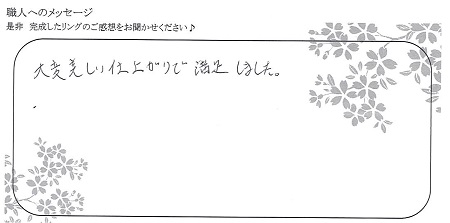 職人へのメッセージ
是非 完成したリングのご感想をお聞かせください♪
大変美しい仕上がりで 満足 しました。